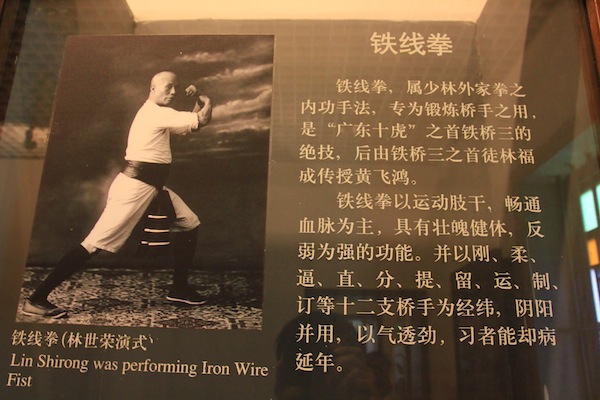 铁线拳
铁线拳，属少林外家拳之
内功手法，专为锻炼桥手之用，
是“广东十虎”之首铁桥三的
绝技，后由铁桥三之首徒林福
成传授黄飞鸿。
铁线拳以运动肢干，畅通
血脉为主，具有壮魄健体，反
弱为强的功能。并以刚、柔、
逼、直、分、提、留、运、制、
订等十二支桥手为经纬，阴阳
并用，以气透劲，习者能却病
延年。
铁线拳（林世荣演式）
Lin Shirong was performing Iron Wire
Fist